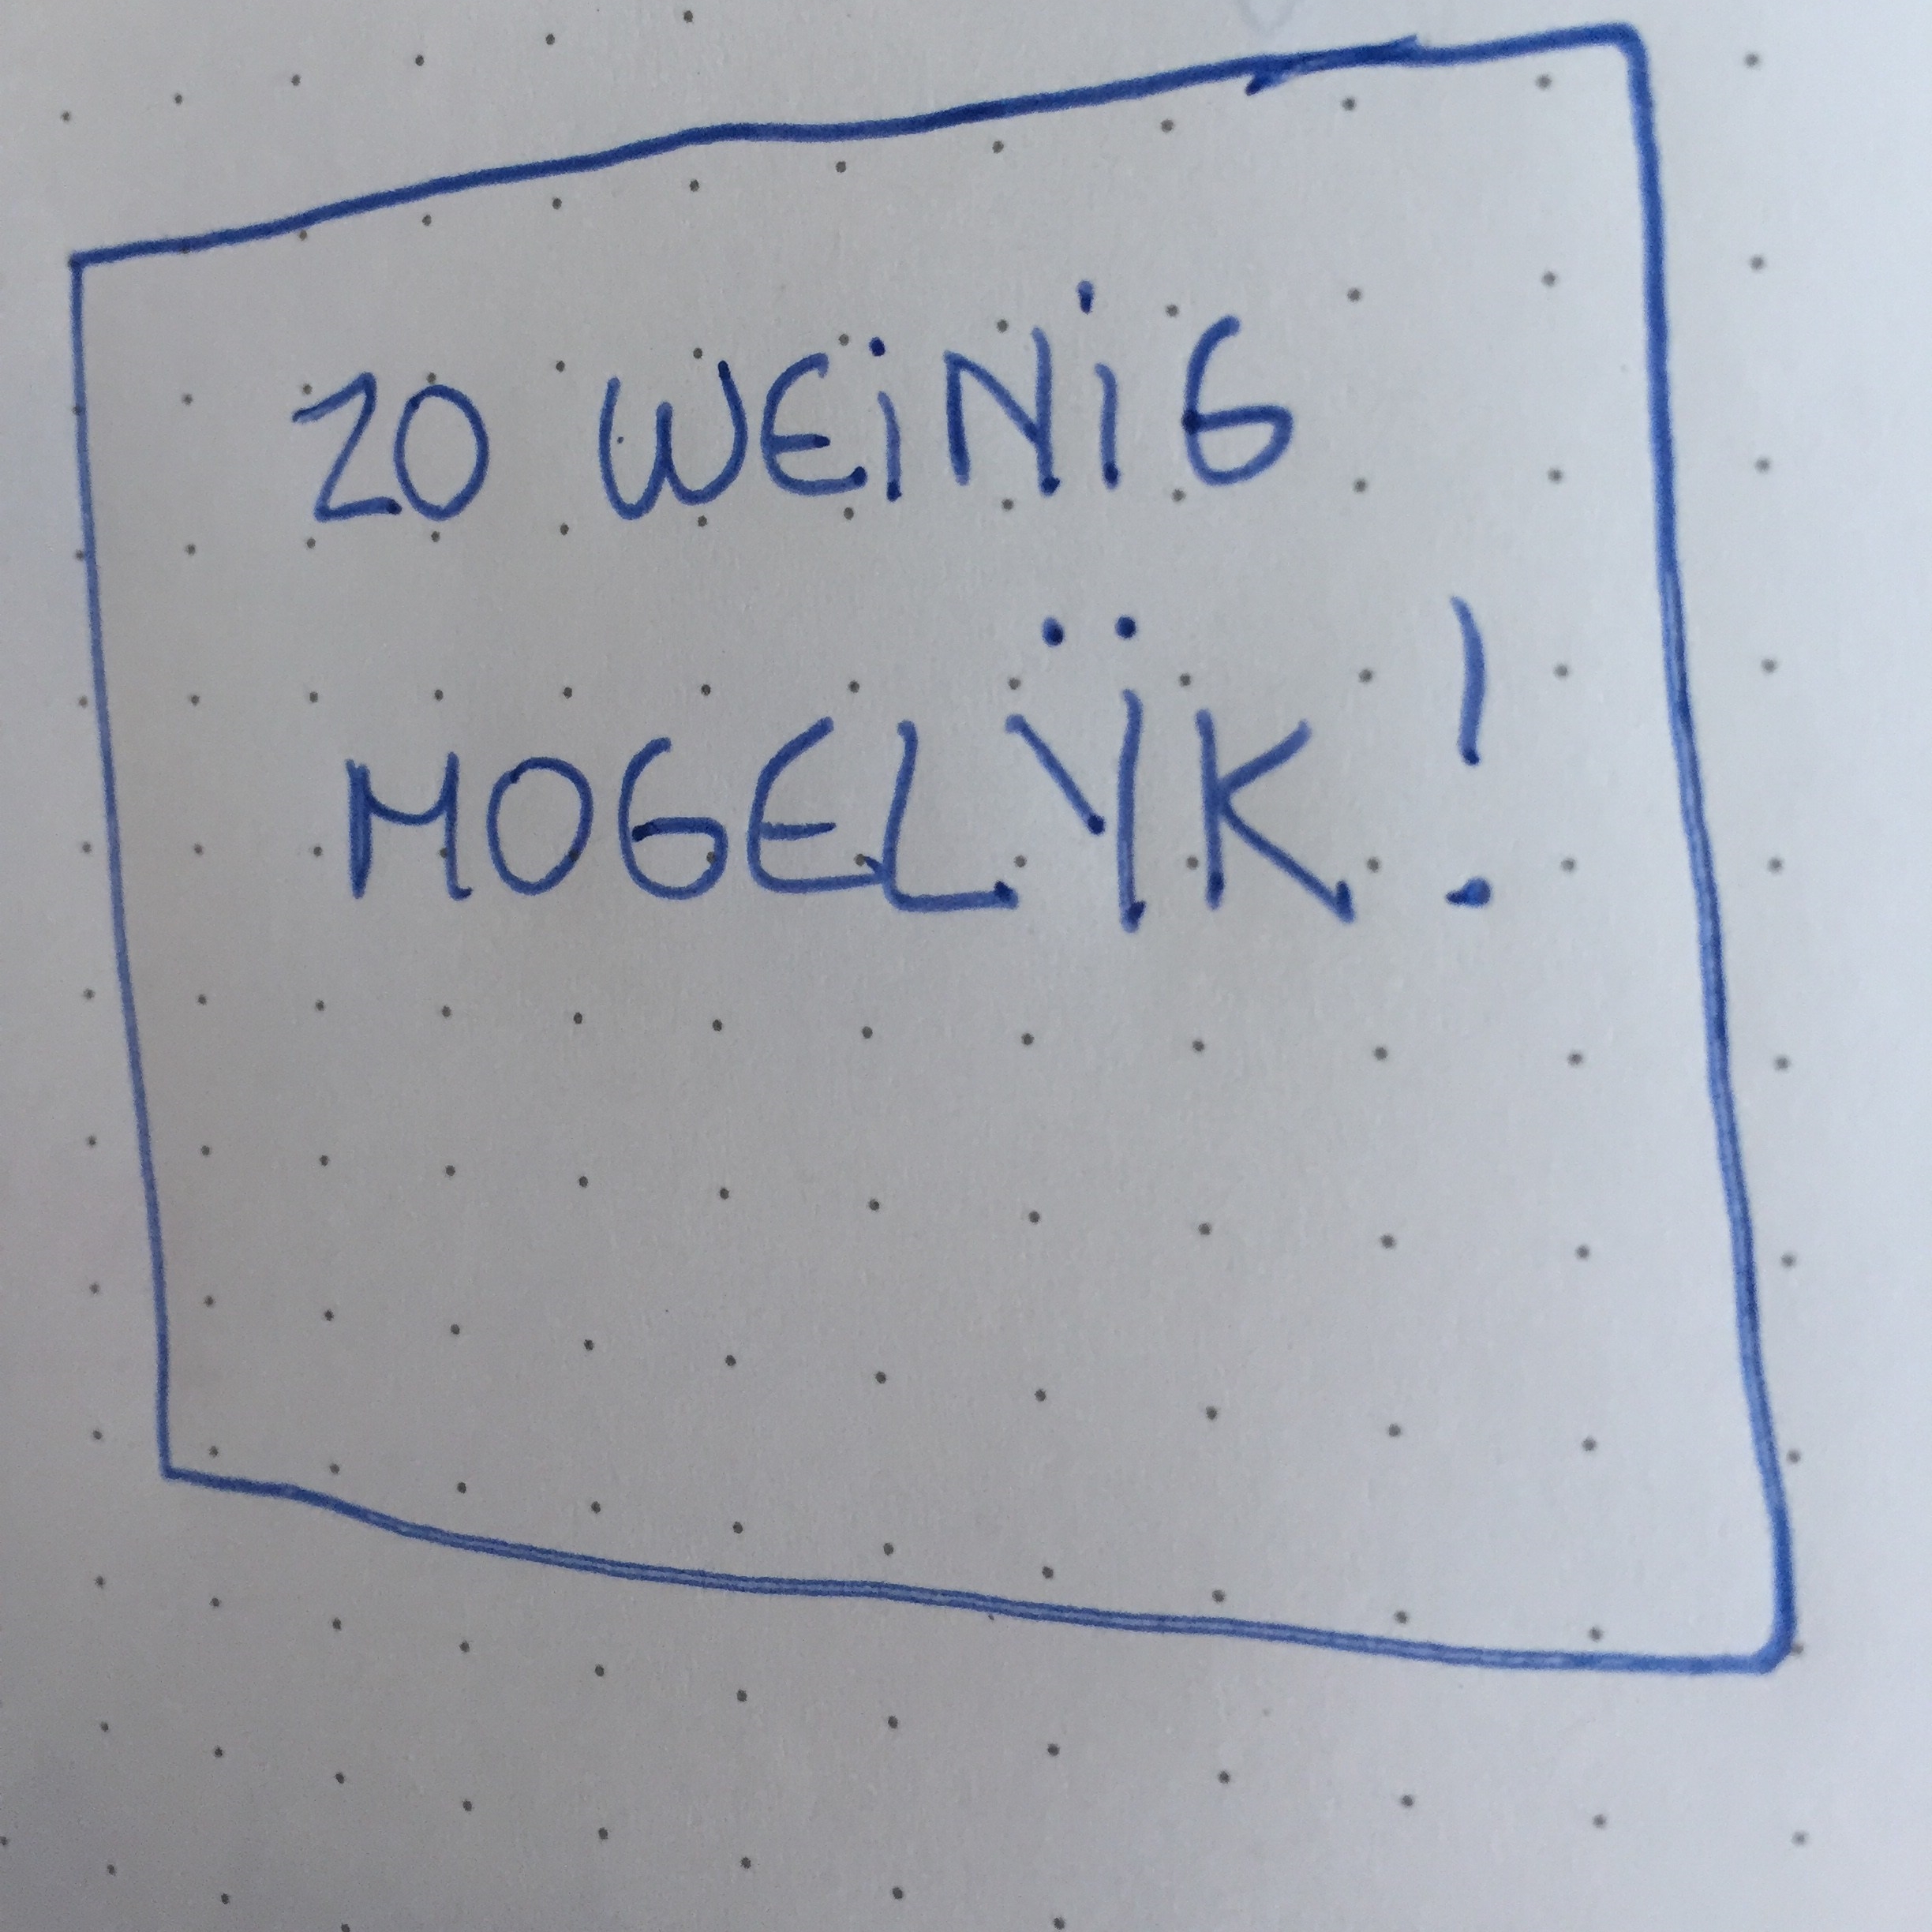 ZO WEiNiG
MOGELŸK!